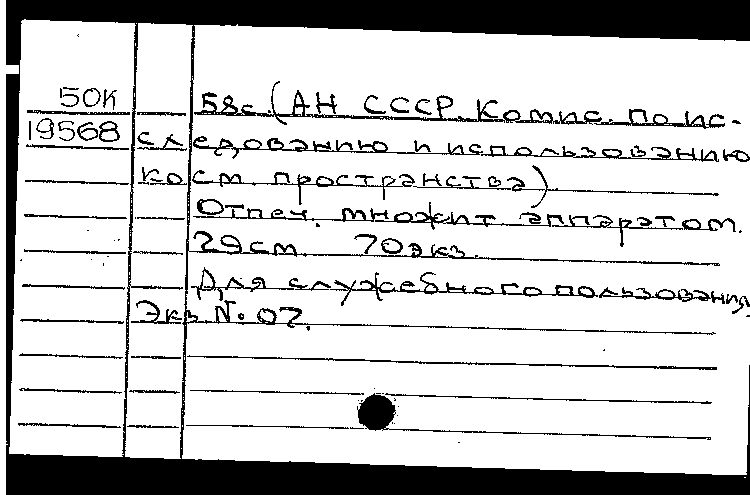 50К 58с. (АН СССР. Комис. по ис-
19568 следованию и использованию
косм. пространства)
Отпеч. множит. аппаратом.
29см. 70экз.
Для служебного пользования.
Экз. № 02.